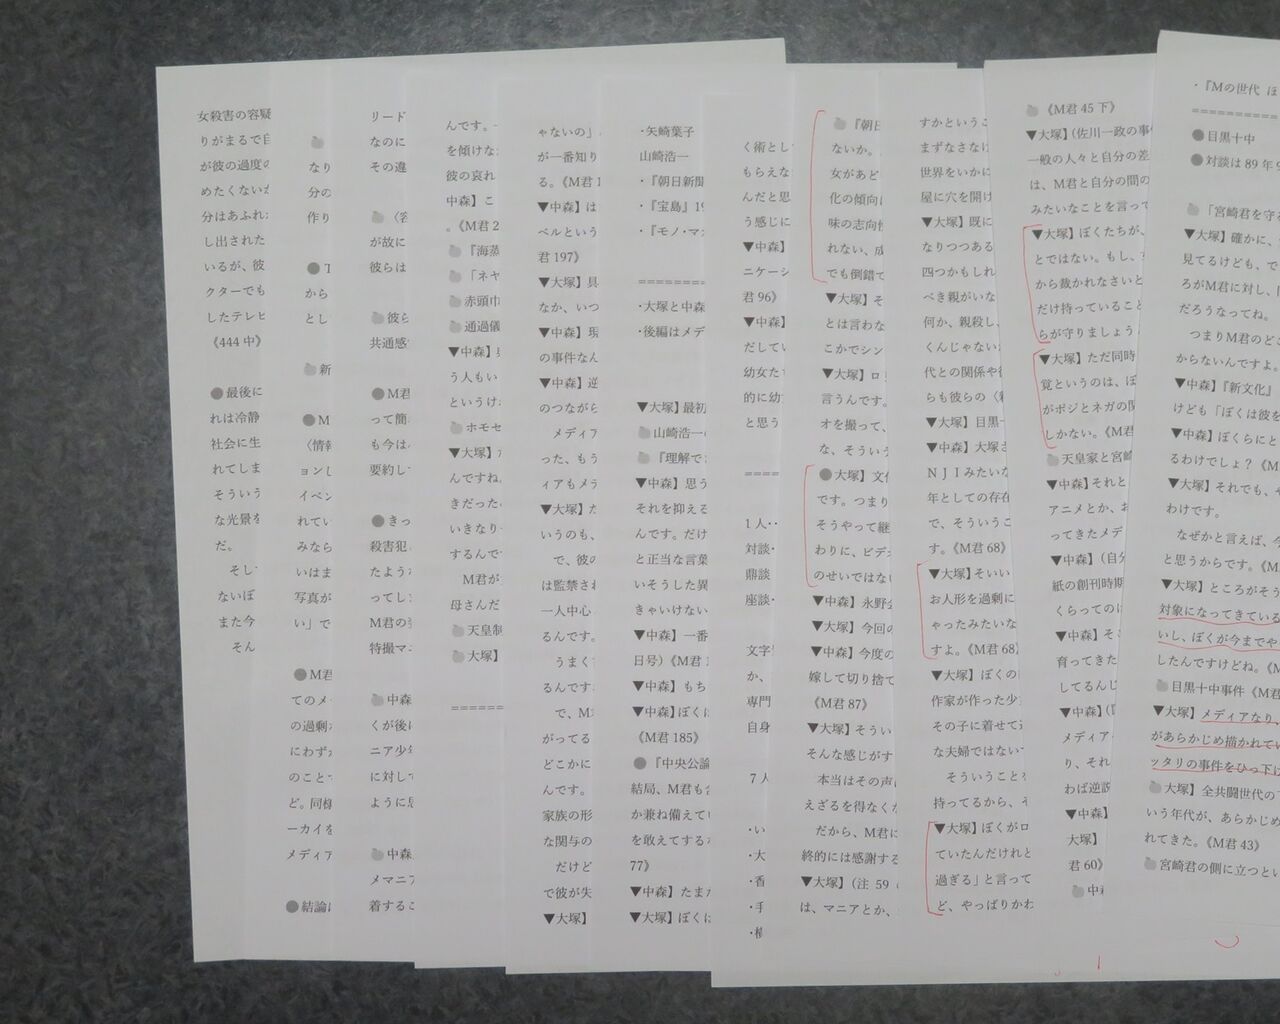 女殺害の容疑
りがまるで自
が彼の過度の
めたくないか
分はあふれ
し出された
いるが、彼
クターでも
したテレビ
《444 中》
●最後に
れは冷静
社会に生
れてしま
そういう
な光景を
だ。
そし
ないぼ
また今
そん
なり
分の
作り
から
とし
新
●M
〈情報
ョンし
イベン
れてい
みなら
いはま
写真が
い」で
●M君
てのメ
の過剰
にわず
のことで
ど。同様
ーカイを
メディア
●結論
リード
なのに
その違
〈容
が故に
彼らは
彼ら
共通感
●M君
って簡
も今は
要約し
●きっ
殺害犯
たような
ってし
M君の
特撮マニ
中森
くが後
ニア少年
に対して
ように思
中森
メマニア
着するこ
んです。
を傾けな
彼の哀れ
中森】こ
。《M君 2
『海蒸
「ネヤ
赤頭巾
通過儀
▼中森】
う人もい
というけ
ホモセ
▼大塚】
んですね
きだった
いきなり
するんで
M君が
母さんだ
天皇制
大塚】
=======
ゃないの」
が一番知り
る。《M君 1
▼中森】は
ベルという
君 197》
▼大塚】具
なか、いつ
▼中森】現
の事件なん
▼中森】逆
のつながら
メディア
った、もう
ィアもメデ
▼大塚】
いうのも、
で、彼の
は監禁され
一人中心
るんです。
うまく
るんです
で、M
がってる
どこかに
んです。
家族の形
な関与の
だけど
で彼が失
▼大塚】
・矢崎葉子
山崎浩一
・『朝日新聞
・『宝島』19
・『モノ・マガ
========
・大塚と中森
・後編はメデ
▼大塚】最初
山崎浩一
『理解で
▼中森】思う
それを抑える
んです。だけ
と正当な言葉
いそうした異
きゃいけない
▼中森】一番
日号）《M君 1
▼中森】もち
▼中森】ぼくに
《M君 185》
●『中央公論
結局、M君も含
か兼ね備えてい
を敢えてする
77》
▼中森】たまた
▼大塚】ぼくは
く術とし
もらえな
んだと思
う感じに
▼中森】
ニケーシ
君 96》
▼中森】
だしてい
幼女た
的に幼
と思う
====
1 人‥
対談・
鼎談
座談・
文字
か、
専門
自身
7 人
・い
・大
・香
・手
『朝日
ないか。
女があど
化の傾向
味の志向性
れない、成
でも倒錯で
▼大塚】そ
とは言わな
こかでシン
▼大塚】ロ
言うんです。
オを撮って、
な、そういう
●大塚】文化
です。つまり
そうやって継
わりに、ビデオ
のせいではない
▼中森】永野
▼大塚】今回の
▼中森】今度の
嫁して切り捨て
《M君 87》
▼大塚】そうい
そんな感じがす
本当はその声
えざるを得なくか
だから、M君に
終的には感謝する
▼大塚】（注 59（
は、マニアとか、
すかというこ
まずなさなけ
世界をいかに
屋に穴を開け
▼大塚】既に
なりつつある
四つかもしれ
べき親がいな
何か、親殺し、
くんじゃない
代との関係や
らも彼らの〈
▼大塚】目黒
▼中森】大塚さ
ＮＪＩみたいな
年としての存在
で、そういうこ
す。《M君 68》
▼大塚】そいい
お人形を過剰に
ゃったみたいな
すよ。《M君 68》
▼大塚】ぼくの
作家が作った少
その子に着せて
な夫婦ではない
そういうことを
持ってるから、そ
▼大塚】ぼくがロ
ていたんだけれど
過ぎる」と言って
ど、やっぱりかわ
《M君 45 下》
▼大塚】（佐川一政の事件
一般の人々と自分の差
は、M君と自分の間の
みたいなことを言って
▼大塚】ぼくたちが、
とではない。もし、
から裁かれなさいと
だけ持っていること
らが守りましょう
▼大塚】ただ同時
覚というのは、ぼ
がポジとネガの関
しかない。《M君
天皇家と宮崎
▼中森】それと
アニメとか、お
ってきたメデ
▼中森】（自分
紙の創刊時期
くらってのに
▼中森】そ
育ってきた
してるんじ
▼中森】
メディア
り、それ
わば逆説
▼中森】
大塚】
君 60》
中森
・『Mの世代 ぼ
==========
●目黒十中
●対談は 89 年 9
「宮崎君を守
▼大塚】確かに、
見てるけども、で
ろがM君に対し、
だろうなってね。
つまりM君のどこ
からないんですよ。
▼中森】『新文化』
けども「ぼくは彼を
▼中森】ぼくらにと
るわけでしょ？《M
▼大塚】それでも、そ
わけです。
なぜかと言えば、今
と思うからです。《M
▼大塚】ところがそう
対象になってきている
いし、ぼくが今までや
したんですけどね。《M
目黒十中事件《M君
▼大塚】メディアなり、
があらかじめ描かれてい
ッタリの事件をひっ下げ
大塚】全共闘世代の
いう年代が、あらかじめ
れてきた。《M君 43》
宮崎君の側に立つとい